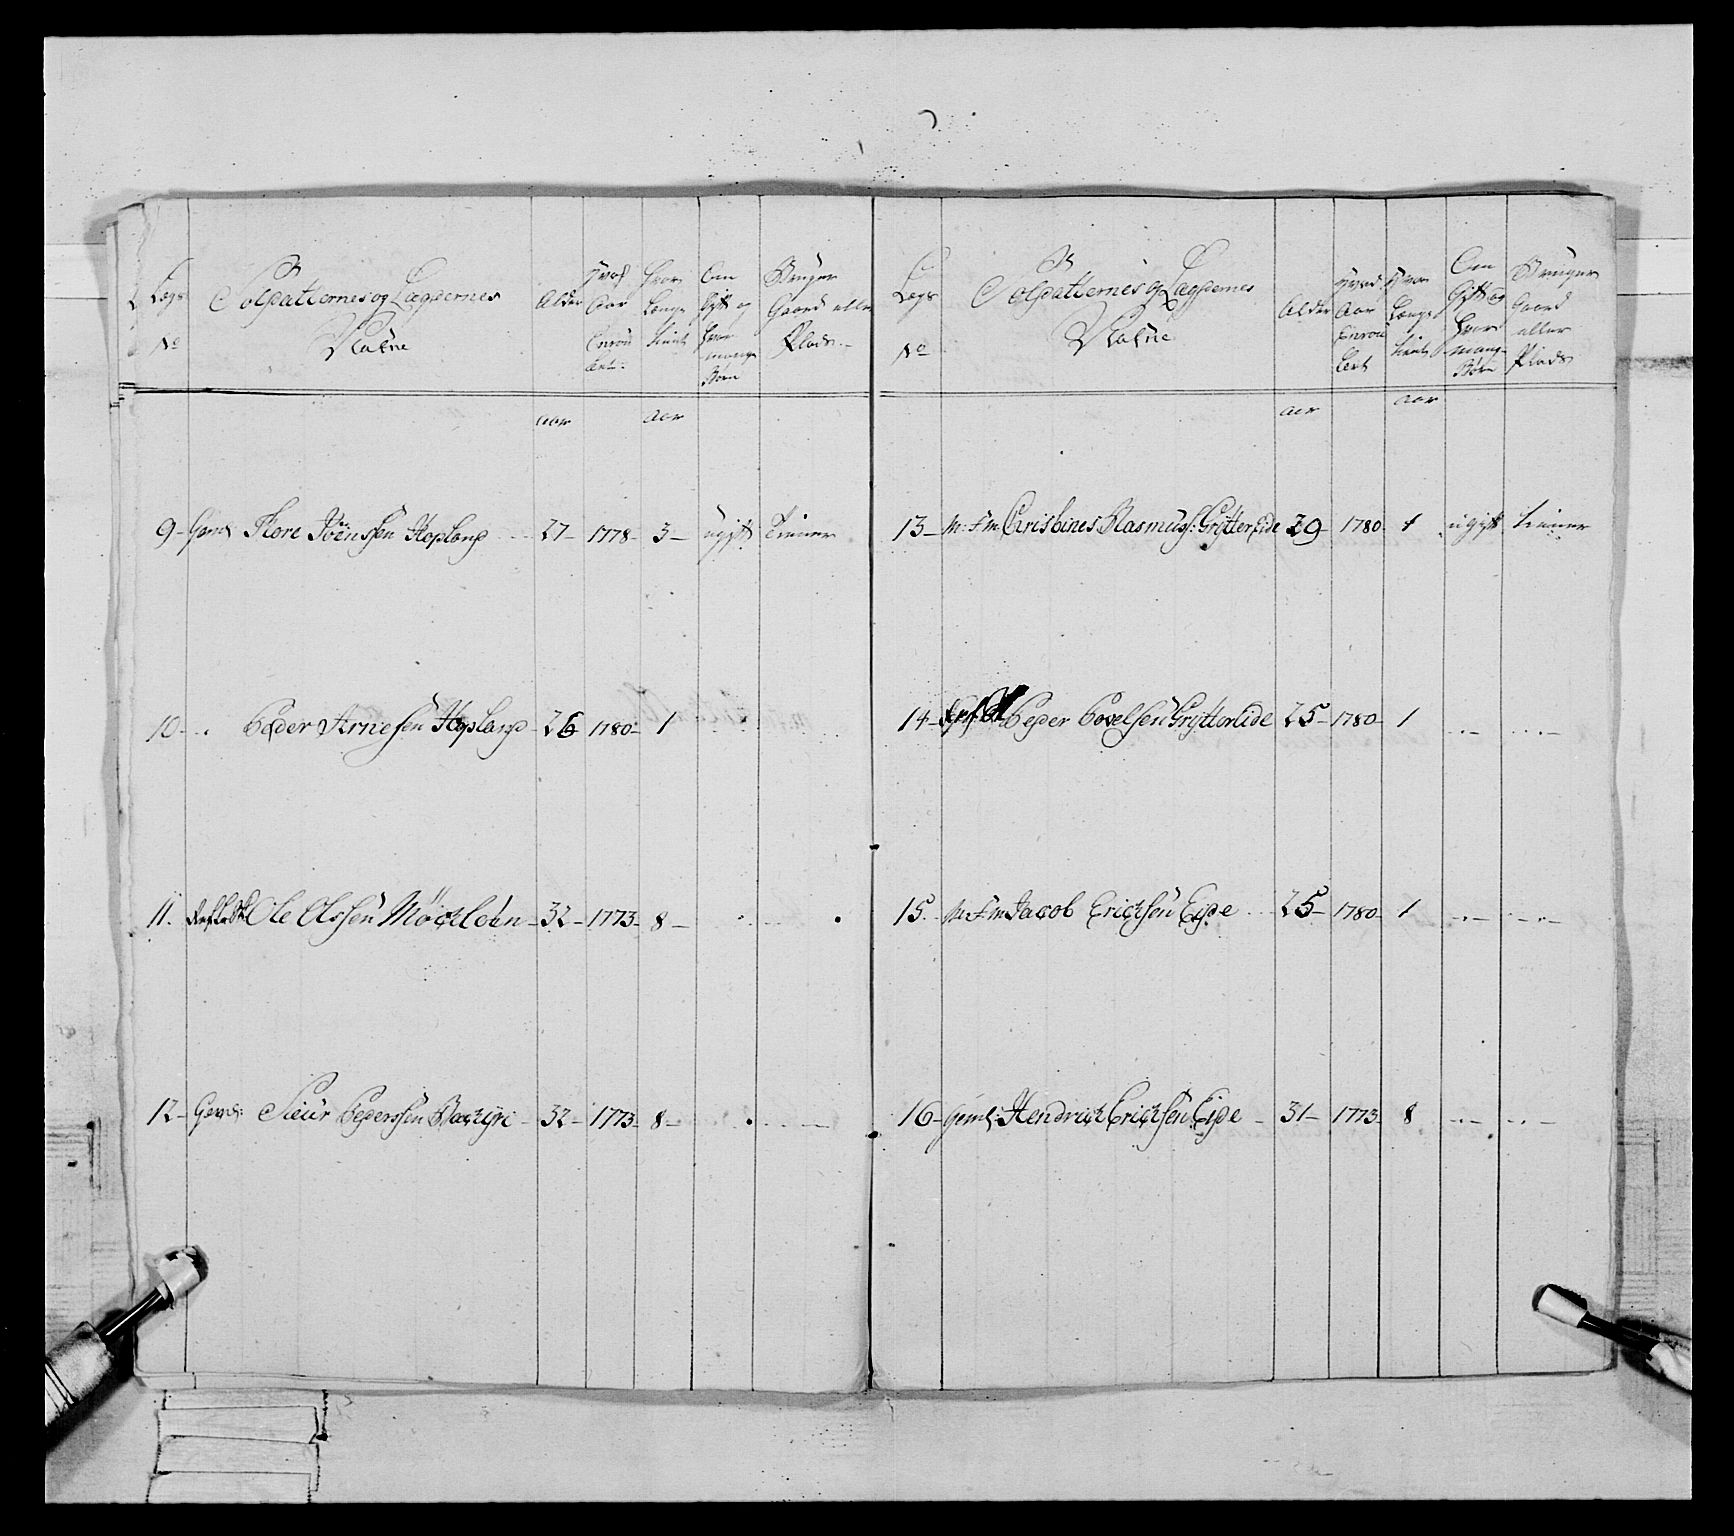 Legs
No
Soldatternes og Lægdernes
Nafne
Alder
Hvad
Aar
Enroul
lert
Hvor
Længe
tient
Om
Gift og
hvor
mange
Børn
Bruger
Gaard eller
Plads
aar
aar
9 Gem: Tkore Hopland 27 1778 3 ugift Tiener
10 Peder Arnesen Hopland 26 1780 1
11. Ole Olssen 32 1773 8
12 Gem: Siur Pederssen 32 1773 8
Legs
No
Soldatternes og Lægdernes
Nafne
Alder
Hvad
Aar
Enroul
lert
Hvor
Længe
tient
Om
Gift og
hvor
mange
Børn
Bruger
Gaard
eller
Plads
aar
aar
13 Rasmus: 29 1780 1 ugift tiener
14 Peder Povelsen 25 1780 1
15. Jacob Ericksen Eide 25 1780 1
16 Geml: Hendrick Ericksen Eide 31 1773 8